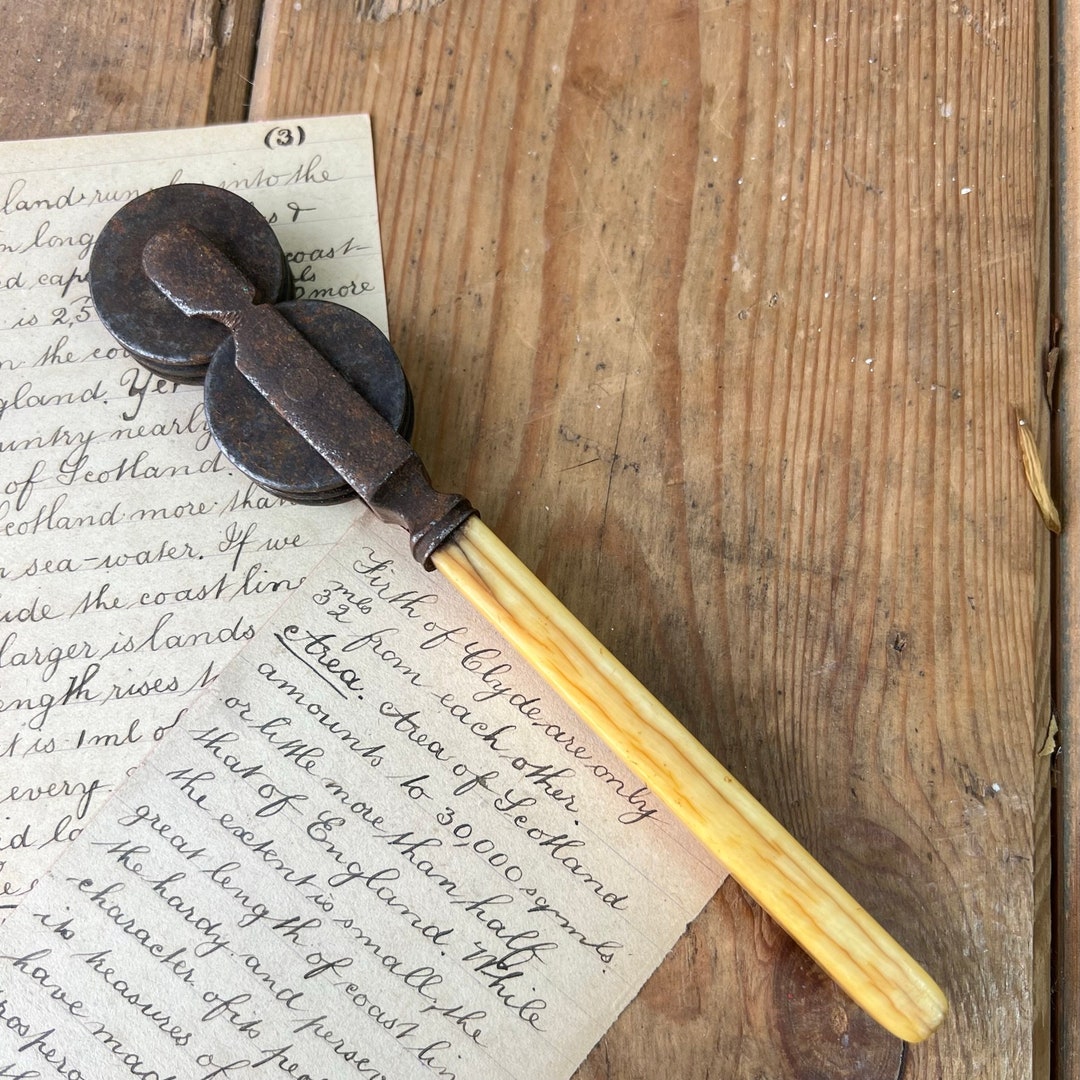 (3)
land runs far into the
long &
coast-
ed cape
is 2,3 more
n the co
gland. Yet
untry nearly
of Scotland.
cotland more than
sea-water. If we
ude the coast line
larger islands
ength rises t
t is 1 ml o
every
id la
Firth of Clyde, are only
32 mls from each other.
Area. Area of Scotland
amounts to 30,000 sq mls.
or little more than half
that of England. While
the extent is small, the
great length of coast line
the hardy and perseve
character of its peo
its treasures of
have made
rospero